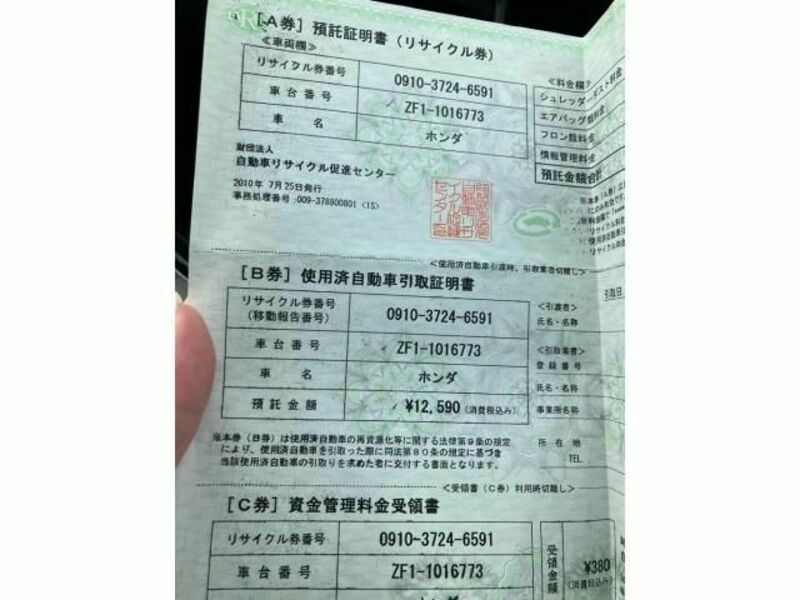 [A券] 預託証明書(リサイクル券)
<車両欄>
リサイクル券番号 0910-3724-6591
車台番号 ZF1-1016773
車名 ホンダ
<料金欄>
シュレッダーダスト料金
エアバッグ類料金
フロン類料金
情報管理料金
預託金額合計
財団法人
自動車リサイクル促進センター
2010年 7月25日発行
事務処理番号:009-378800801 <1S>
<使用済自動車引渡時、引取業者切離し>
[B券] 使用済自動車引取証明書
リサイクル券番号
(移動報告番号) 0910-3724-6591
車台番号 ZF1-1016773
車名 ホンダ
預託金額 ¥12,590 (消費税込み)
引取日
<引渡者>
氏名・名称
<引取業者>
登録番号
氏名・名称
事業所名称
所在地
TEL
※本券(B券)は使用済自動車の再資源化等に関する法律第9条の規定
により、使用済自動車を引取った際に同法第80条の規定に基づき
当該使用済自動車の引取りを求めた者に交付する書面となります。
<受領書(C券)利用時切離し>
[C券] 資金管理料金受領書
リサイクル券番号 0910-3724-6591
車台番号 ZF1-1016773
受領金額 ¥380
(消費税込み)